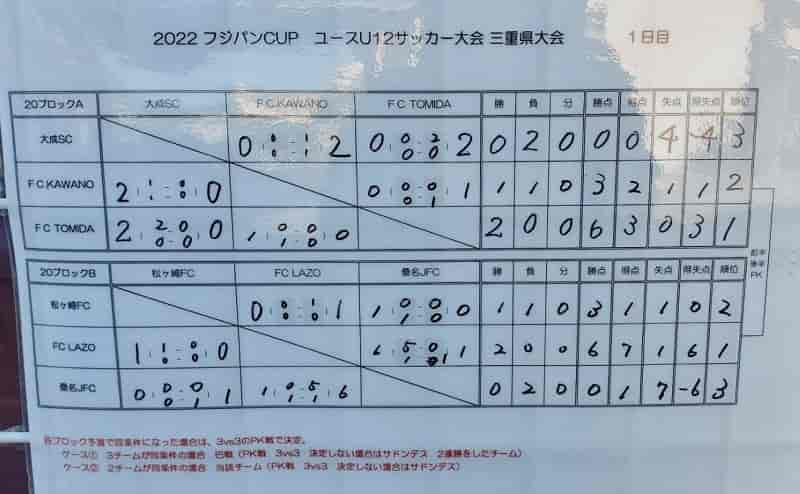 2022 フジパンCUP ユースU12サッカー大会 三重県大会 1日目
20ブロックA 大成SC F.C.KAWANO F C TOMIDA 勝 負 分 勝点 得点 失点 得失点 順位
大成SC 0 0:1 0:1 2 0 0:2 0:0 2 0 2 0 0 0 4 -4 3
F.C.KAWANO 2 1:0 1:0 0 0 0:0 0:1 1 1 1 0 3 2 1 1 2
F C TOMIDA 2 2:0 0:0 0 1 0:0 1:0 0 2 0 0 6 3 0 3 1
20ブロックB 松ヶ崎FC FC LAZO 桑名JFC 勝 負 分 勝点 得点 失点 得失点 順位
松ヶ崎FC 0 0:1 0:0 1 1 0:0 1:0 0 1 1 0 3 1 1 0 2
FC LAZO 1 1:0 0:0 0 6 5:0 1:1 1 2 0 0 6 7 1 6 1
桑名JFC 0 0:0 0:1 1 1 0:5 1:1 6 0 2 0 0 1 7 -6 3
前半
後半
PK
各ブロック予選で同条件になった場合は、3vs3のPK戦で決定。
ケース① 3チームが同条件の場合 巴戦（PK戦 3vs3 決定しない場合はサドンデス 2連勝をしたチーム）
ケース② 2チームが同条件の場合 当該チーム（PK戦 3vs3 決定しない場合はサドンデス）